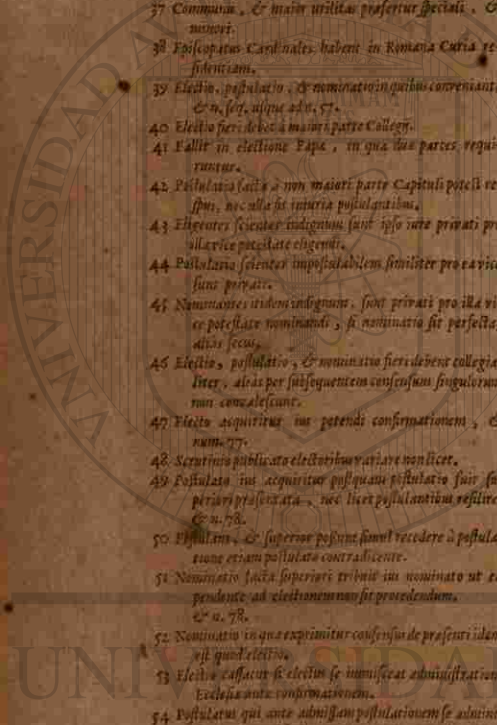 37 Communis, & maior utilitas præfertur speciali, &
minori.
38 Episcopatus Cardinales habent in Romana Curia re-
sidentiam.
39 Electio, postulatio, & nominatio in quibus conveniant
& n. seq. usque ad n. 57.
40 Electio fieri debet à maiori parte Collegij.
41 Fallit in electione Papæ, in qua duæ partes requi-
runtur.
42 Postulatio facta à non maiori parte Capituli potest re-
spui, nec ulla fit iniuria postulantibus.
43 Eligentes scienter indignum sunt ipso iure privati pro
illa vice potestate eligendi.
44 Postulatio scienter impostulabilem similiter pro ea vice
sunt privati.
45 Nominantes itidem indignum, sunt privati pro illa vi-
ce potestate nominandi, si nominatio sit perfecta,
aliàs secus.
46 Electio, postulatio, & nominatio fieri debent collegia-
liter, aliàs per subsequentem consensum singulorum
non convalescunt.
47 Electo acquiritur ius petendi confirmationem, &
num. 77.
48 Scrutinio publicato electoribus variare non licet.
49 Postulato ius acquiritur postquam postulatio fuit su-
periori præsentata, nec licet postulantibus resilire
& n. 78.
50 Postulans, & superior possunt simul recedere à postula-
tione etiam postulato contradicente.
51 Nominatio facta superiori tribuit ius nominato ut ea
pendente ad electionem non sit procedendum.
& n. 78.
52 Nominatio in qua exprimitur consensus de præsenti idem
est quod electio.
53 Electio cassatur si electus se immisceat administration
Ecclesiæ ante confirmationem.
54 Postulatus qui ante admissam postulationem se admini
UNIVERSIDAD
UNIV